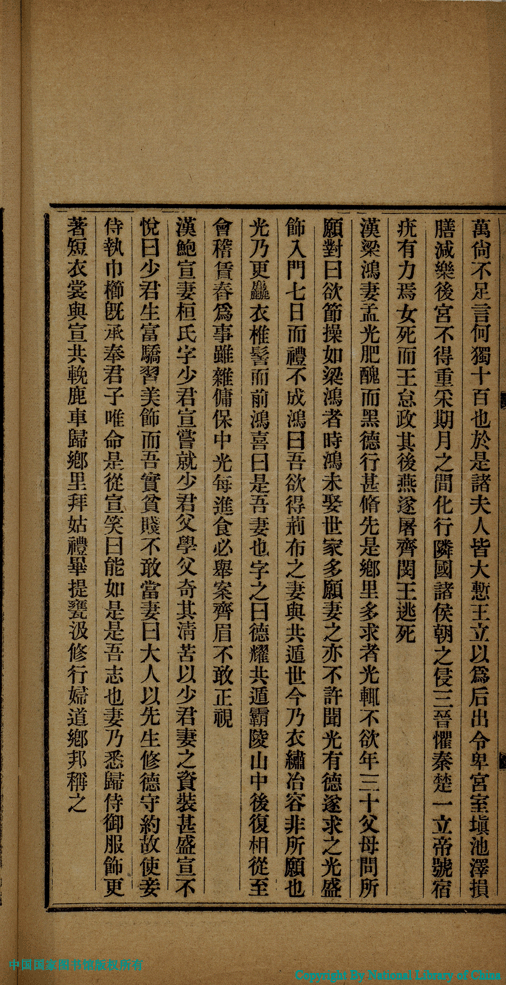 萬尙不足言何獨十百也於是諸夫人皆大慙王立以爲后出令卑宮室塡池澤損
膳減樂後宮不得重采期月之間化行隣國諸侯朝之侵三晉懼秦楚一立帝號宿
疣有力焉女死而王怠政其後燕遂屠齊閔王逃死
漢梁鴻妻孟光肥醜而黑德行甚脩先是鄉里多求者光輒不欲年三十父母問所
願對曰欲節操如梁鴻者時鴻未娶世家多願妻之亦不許聞光有德遂求之光盛
飾入門七日而禮不成鴻曰吾欲得荊布之妻與共遁世今乃衣繡冶容非所願也
光乃更麤衣椎髻而前鴻喜曰是吾妻也字之曰德耀共遁霸陵山中後復相從至
會稽賃舂爲事雖雜傭保中光每進食必舉案齊眉不敢正視
漢鮑宣妻桓氏字少君宣嘗就少君父學父奇其淸苦以少君妻之資裝甚盛宣不
悅曰少君生富驕習美飾而吾實貧賤不敢當妻曰大人以先生修德守約故使妾
侍執巾櫛旣承奉君子唯命是從宣笑曰能如是是吾志也妻乃悉歸侍御服飾更
著短衣裳與宣共輓鹿車歸鄉里拜姑禮畢提甕汲修行婦道鄉邦稱之
中国国家图书馆版权所有
Copyright By National Library of China